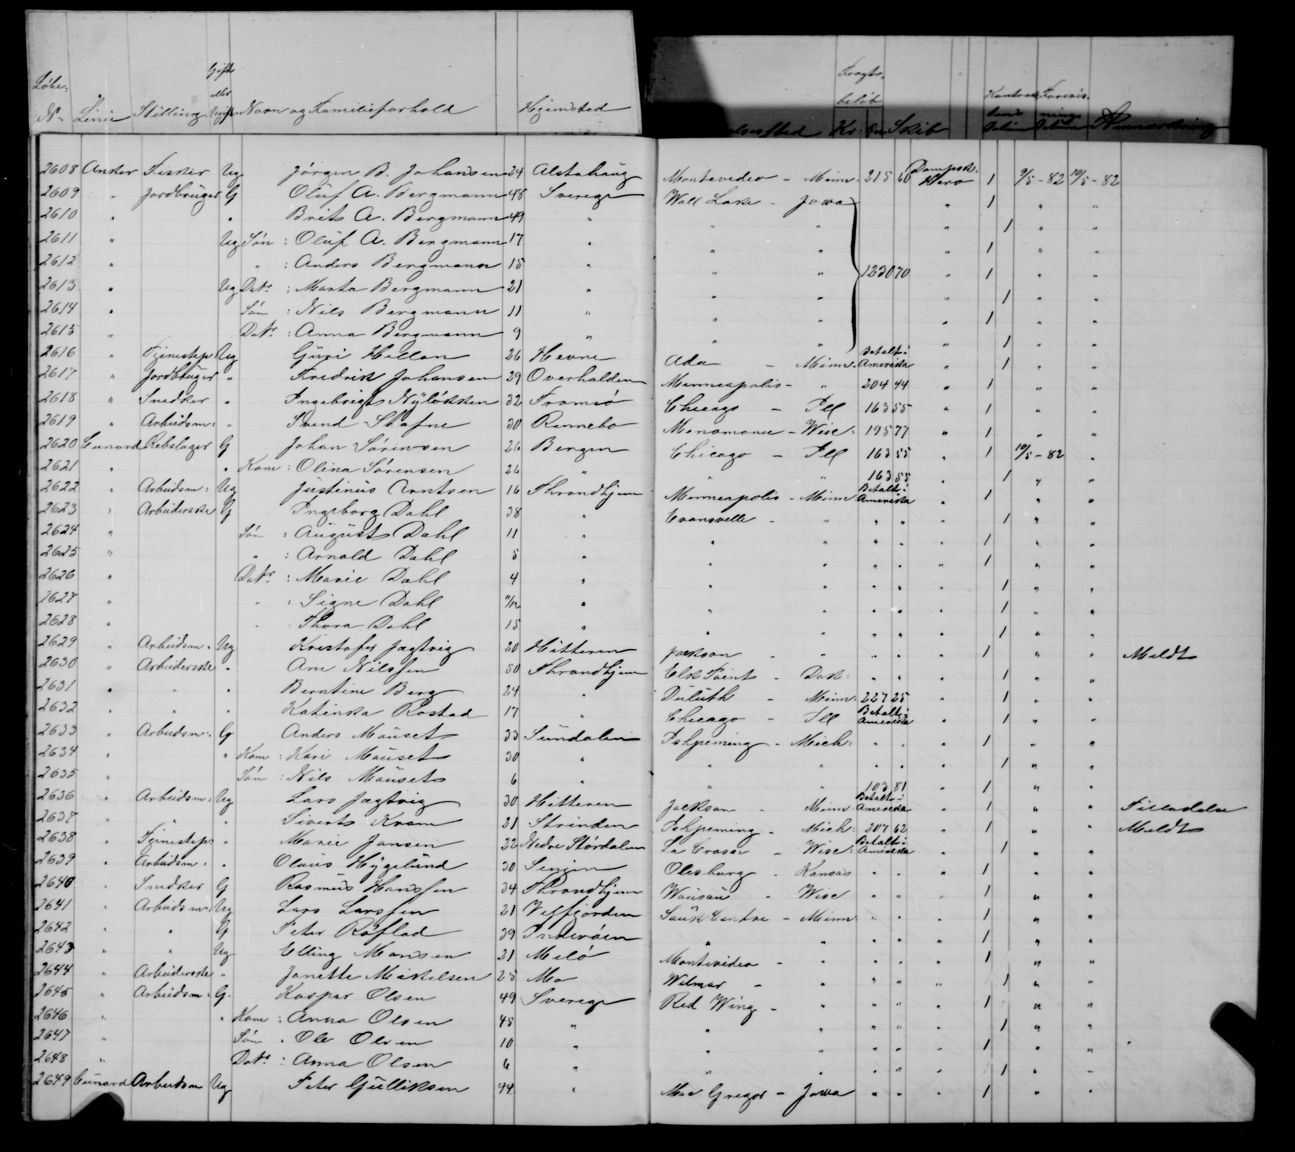 Løbe- Gift
eller
No Linie Stilling Ugift Navn og Familieforhold Hjemsted Fragt-
beløb Kr. Øre Skib Anmærkning
2608 Anker Fisker Ug Jörgen B. Johansen 24 Alstahaug Montevideo - Minn. 215 60 Dampsk. Hero 1 9/5-82 10/5-82
2609 " Jordbruger G Oluf A. Bergmann 48 Sverige Wall Lake - Jowa " 1 " "
2610 " " Brita A. Bergmann 49 " " " " 1 " "
2611 " Ug Søn : Oluf A. Bergmann 17 " " " " 1 " "
2612 " " : Anders Bergmann 15 " " " 1230 70 " 1 " "
2613 " Ug Datr : Marta Bergmann 21 " " " " 1 " "
2614 " Søn : Nils Bergmann 11 " " " " 1 " "
2615 " Datr : Anna Bergmann 9 " " " " 1 " "
2616 " Tjenestep. Ug Guri Hellan 26 Hevne Ada - Minn. Betalt i Amerika " 1 " "
2617 " Jordbruger " Fredrik Johansen 29 Overhalden Minneapolis - " 204 44 " 1 " "
2618 " Snedker " Ingebrigt Nyløkken 32 Tromsø Chicago - Ill 163 55 " 1 " "
2619 " Arbeidsm. " Svend Skafne 30 Rennebo Menomonie - Wisc. 195 77 " 1 " "
2620 Cunard Rebslager G Johan Sørensen 26 Bergen Chicago - Ill 163 55 " 1 10/5-82 "
2621 " " Kone : Olina Sørensen 26 " " " 163 55 " 1 " "
2622 " Arbeidsm. Ug Justinus Arntsen 16 Throndhjem Minneapolis - Minn Betalt i Amerika " 1 " "
2623 " Arbeiderske G Ingeborg Dahl 38 " Evansville - " " " " 1 " "
2624 " Søn : August Dahl 11 " " " " " " 1 " "
2625 " " : Arnold Dahl 5 " " " " " " 1 " "
2626 " Datr : Marie Dahl 4 " " " " " " 1 " "
2627 " " : Signe Dahl 11/12 " " " " " " 1 " "
2628 " " Thora Dahl 15 " " " " " " 1 " "
2629 " Arbeidsm. Ug Kristofer Jagtvig 20 Hitteren Jackson - " " " " 1 " " Meldt
2630 " Arbeiderske " Ane Nilssen 50 Throndhjem Elk Point - Dak. " " " 1 " "
2631 " " " Berntine Berg 24 " Duluth - Minn. 227 25 " 1 " "
2632 " " " Katinka Rostad 17 " Chicago - Ill Betalt i Amerika " 1 " "
2633 " Arbeidsm. G Anders Mauset 33 Sundalen Ishpeming - Mich. " " " 1 " "
2634 " " Kone : Kari Mauset 30 " " " " " " 1 " "
2635 " Søn : Nils Mauset 6 " " " 103 81 " 1 " "
2636 " Arbeidsm. Ug Lars Jagtvig 30 Hitteren Jackson - Minn Betalt i Amerika " 1 " "
2637 " " " Sivert Kvam 21 Strinden Ishpeming - Mich. 207 62 " 1 " " Meldt
2638 " Tjenestep. " Marie Jensen 22 Nedre Størdalen La Crosse - Wisc. Betalt i Amerika " 1 " "
2639 " Arbeidsm. " Olaus Hygelund 30 Senjen Olesburg - Kansas " " " 1 " "
2640 " Snedker G Rasmus Hanssen 34 Throndhjem Wausau - Wisc " " " 1 " "
2641 " Arbeidsm. Ug Lars Larssen 21 Velfjorden Sauk Centre - Minn " " " 1 " "
2642 " " G Peter Røflad 39 Inderøen " " " " " 1 " "
2643 " " Ug Elling Monsen 21 Melø Montevideo - " " " " 1 " "
2644 " Arbeiderske " Janette Mikelsen 25 Mo Wilmar - " " " " 1 " "
2645 " Arbeidsm. G. Kaspar Olsen 49 Sverige Red Wing - " " " " 1 " "
2646 " " Kone : Anna Olsen 45 " " " " " " 1 " "
2647 " Søn " Ole Olsen 10 " " " " " " 1 " "
2648 " Datr : Anna Olsen 6 " " " " " " 1 " "
2649 Cunard Arbeidsm Ug Peter Gulliksen 44 " Mac Gregor - Jowa " " " 1 " "